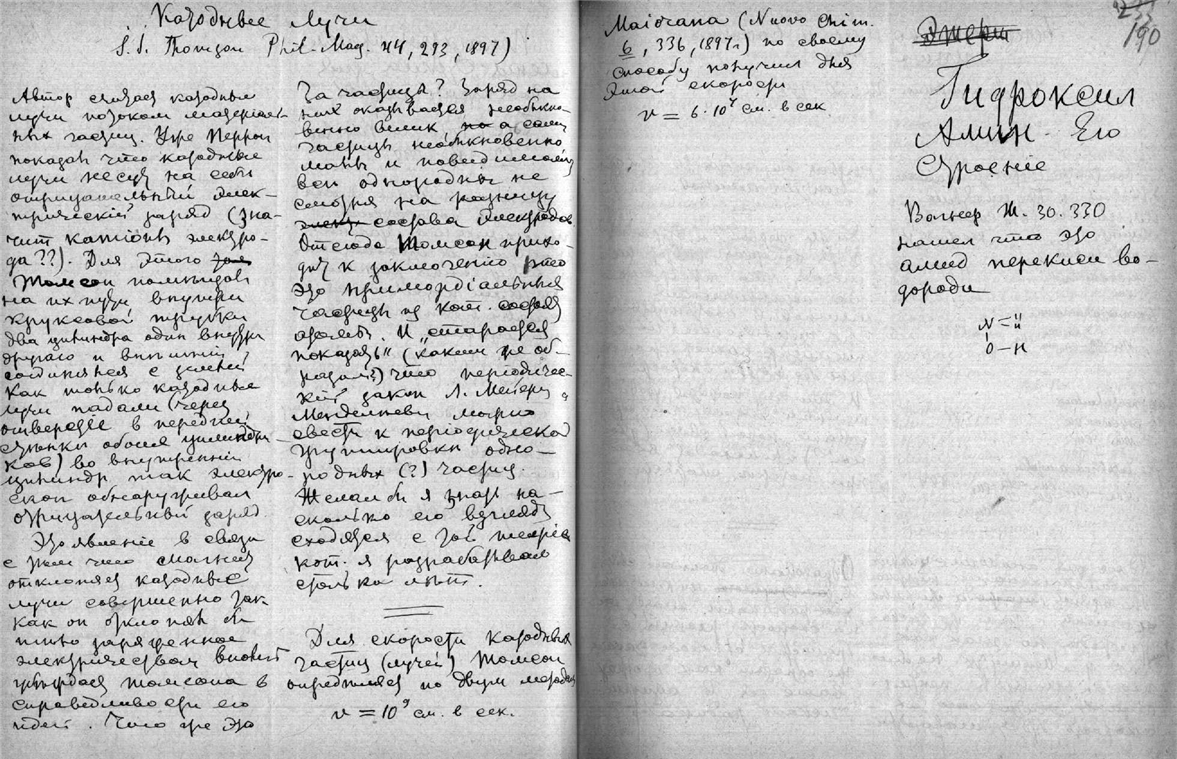 Катодные лучи
J. J. Thomson Phil. Mag. 44, 293, 1897)
Автор считает катодные
лучи потоком материаль-
ных частиц. Уже Перрен
показал что катодные
лучи несут на себе
отрицательный элек-
трический заряд (зна-
чит катионъ электро-
да??). Для этого
Томсон помещал
на их пути внутри
круксовой трубки
два цилиндра один внутри
другаго и внешній
соединялся с землей
Как только катодные
лучи падали (через
отверстіе в передней
стенки обоих цилиндри-
ков) во внутренній
цилиндр, так электро-
скоп обнаруживал
отрицательный заряд.
Это явленіе в связи
с тем что магнит
отклоняет катодные
лучи совершенно так
как он отклонял бы
тело заряженное
электричеством вполне
убеждает Томсона в
справедливости его
идеи. Что же это
за частица? Заряд на
них оказывается необыкно-
венно велик а сами
частицы необыкновенно
малы и повидимому
все однородны не
смотря на разницу
состава электродов
Отсюда Томсон прихо-
дит к заключению что
это примордіальныя
частицы из кот. состоят
атомы. И „старается
показать" (каким же об-
разом?) что періодичес-
кій закон Л. Мейера и
Менделеева можно
свести к періодически
группировки одно-
родных (?) частиц.
Желал бы я знать на-
сколько его взгляды
сходятся с той теоріей
кот. я разрабатывал
столько летъ.
Для скорости катодных
частиц (лучей) Томсон
определяет по двум методам
v = 10⁹ см. в сек.
Maiorana (Nuovo Chim.
6, 336, 1897г) по своему
способу получил для
этой скорости
v = 6·10⁸ см. в сек
190
Гидроксил
Амин. Его
Строеніе
Вагнер Ж. 30. 330
нашел что это
амид перекиси во-
дорода
N = H
H
O – H